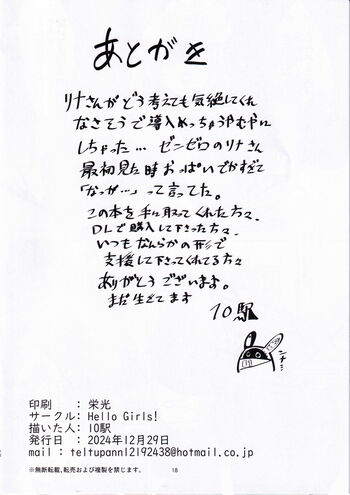 あとがき
リナさんがどう考えても気絶してくれ
なさそうで導入めっちゃうやむやに
しちゃった…ゼンゼロのリナさん
最初見た時おっぱいでかすぎて
「なっが…」って言ってた。
この本を手に取ってくれた方々、
DLで購入して下さった方々、
いつもなんらかの形で
支援して下さってくれてる方々
ありがとうございます。
まだ生きてます
10駅
印刷　：栄光
サークル：Hello Girls!
描いた人：10駅
発行日　：2024年12月29日
mail : teltupann12192438@hotmail.co.jp
※無断転載、転売および複製を禁じます。
18